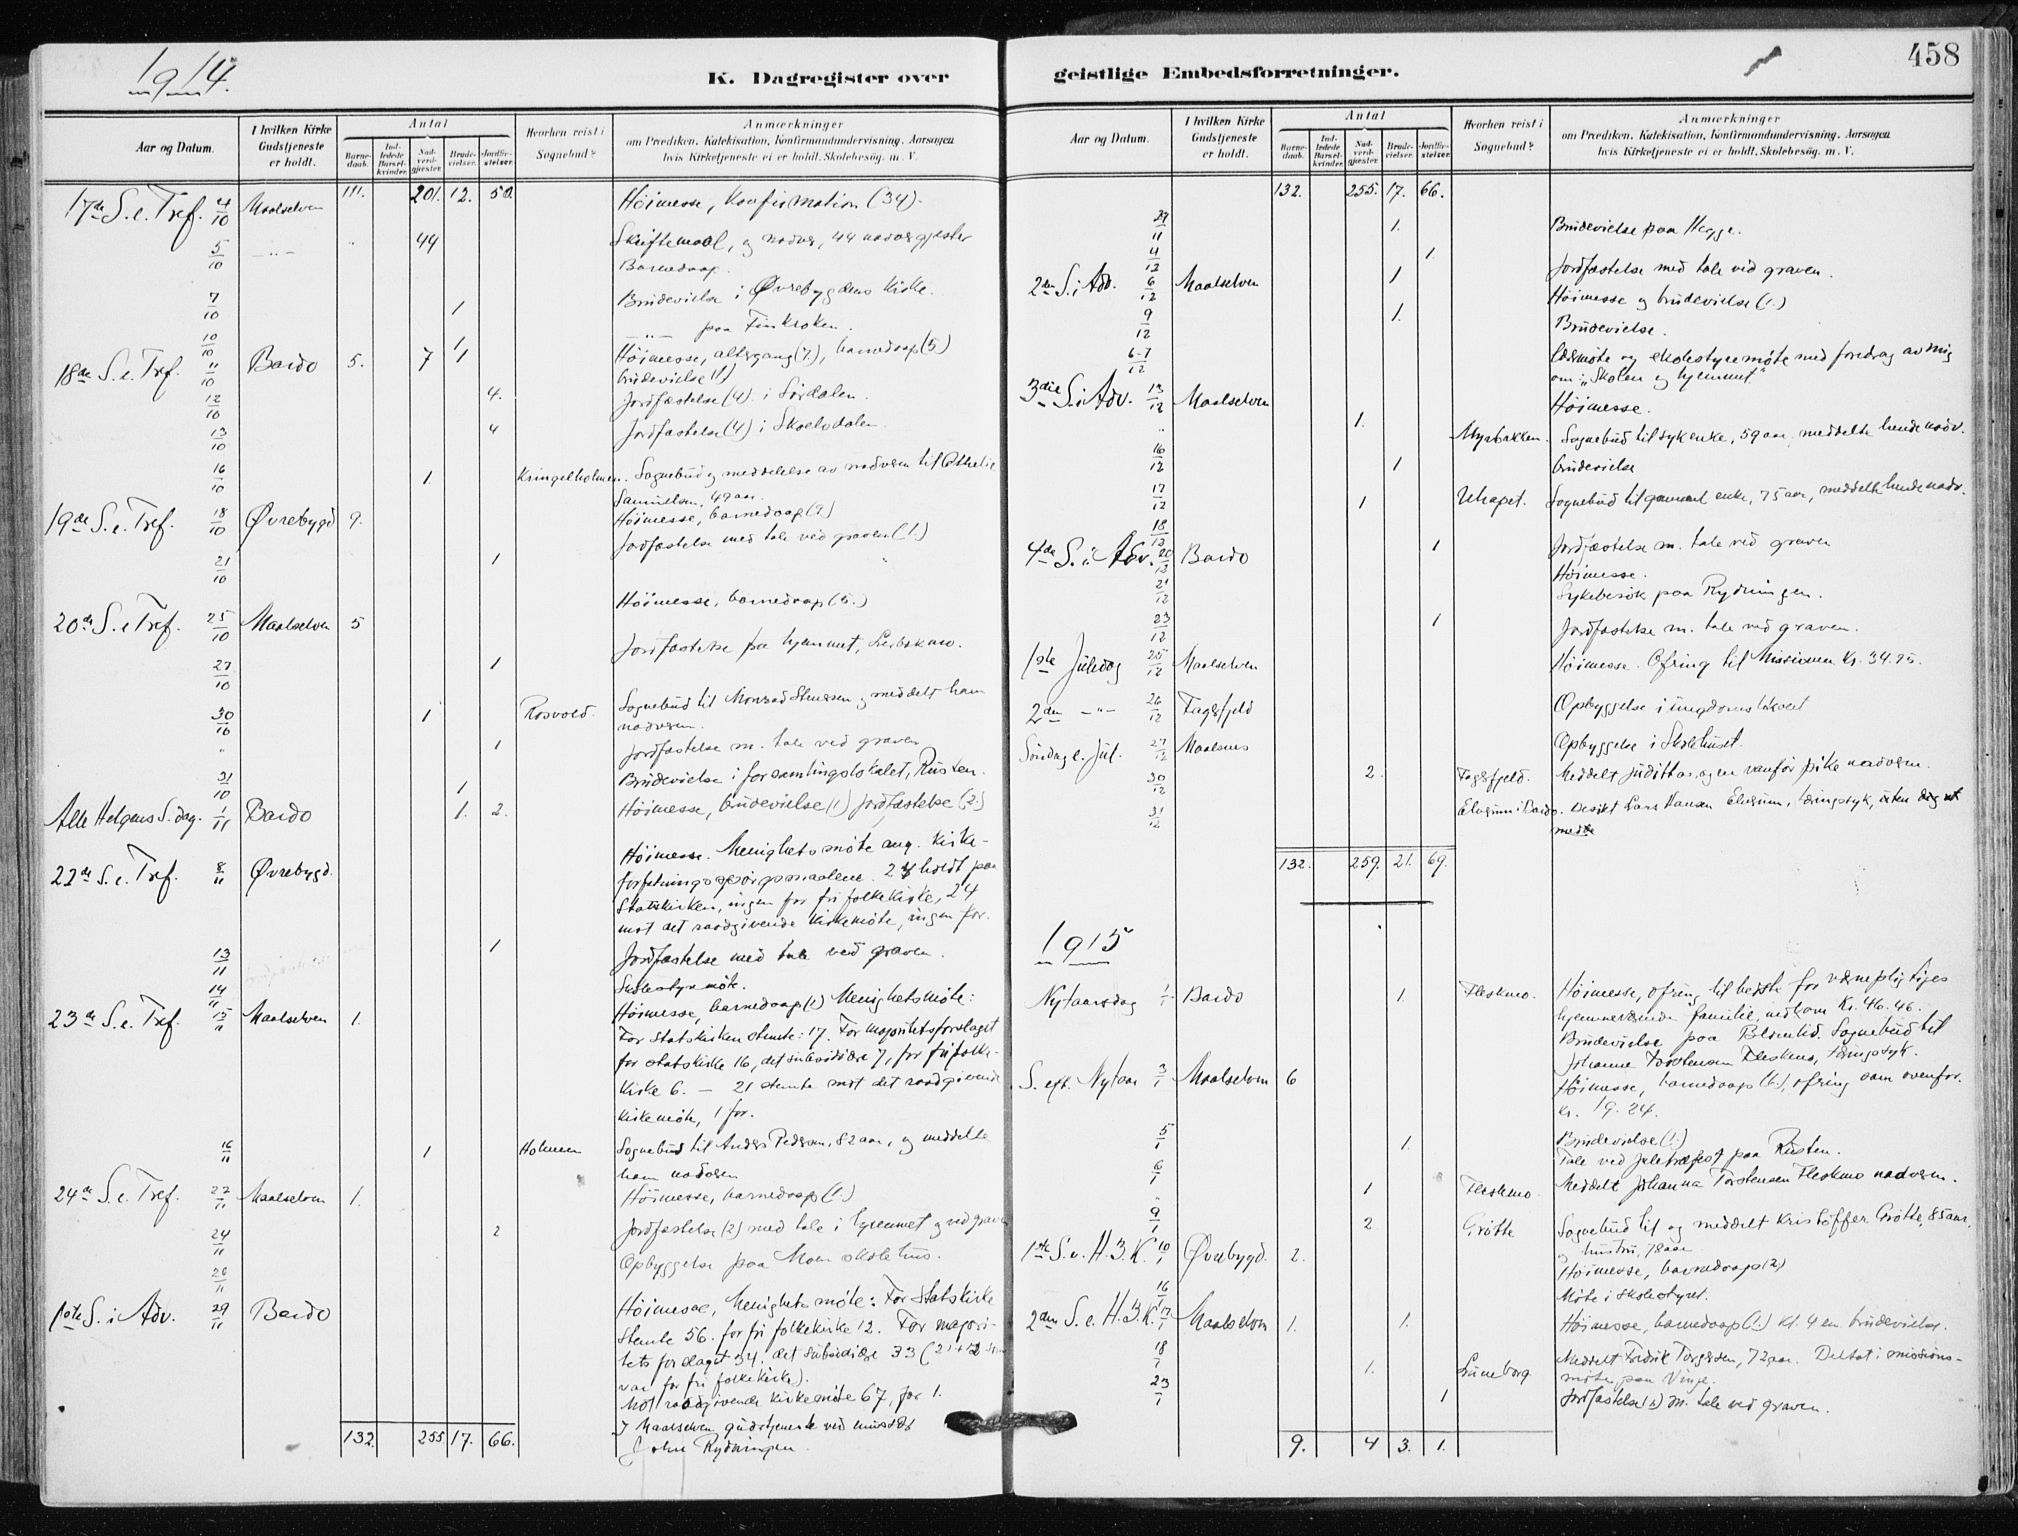 1914.
K. Dagregister over
Aar og Datum.
I hvilken Kirke Gudstjeneste er holdt.
Antal
Barnedaab.
Indledede Barselkvinder.
Nadverdgjester.
Brudevielser.
Jordfæstelser.
Hvorhen reist i Sognebud?
Anmærkninger
om Prædiken, Katekisation, Konfirmandundervisning, Aarsagen
hvis Kirketjeneste ei er holdt, Skolebesøg. m. V.
111. 201. 12. 50.
17de S. e. Tref. 4/10 Maalselven Höimesse, Konfirmation (34).
5/10 — " — " 44 Skriftemaal, og nadv, 44 nadvergjester
Barnedaap.
7/10 1 Brudevielse i Øvrebygdens Kirke.
10/10 1. —"— paa Finkroken.
18de S. e. Tref. 11/10 Bardo 5. 7 1 Höimesse, altergang (7.), barnedaap (5.)
brudevielse (1)
12/10 4. Jordfæstelse (4). i Sördalen.
13/10 4 Jordfæstelse (4) i Skoelvdalen.
16/10 1. Kringelholmen. Sognebud og meddelelse av nadveren til Othelie
Samuelsen, 49 aar.
19de S. e. Tref. 18/10 Øvrebygd 9. Höimesse, barnedaap (9)
Jordfæstelse med tale ved graven (1.)
21/10 1
20de S. e Tref. 25/10 Maalselven 5 Höimesse, barnedaap (5.)
27/10 1 Jordfæstelse paa hjemmet,
30/10 1 Rosvold. Sognebud til Monrad Stenersen og meddelt ham
nadveren.
" 1 Jordfæstelse m. tale ved graven
31/10 1 Brudevielse i forsamlingslokalet, Rusten.
Alle Helgens S. dag. 1/11 Bardo 1. 2. Höimesse, brudevielse (1) Jordfæstelse (2.)
22de S. e. Tref. 8/11 Øvrebygd. Höimesse. Menighetsmöte ang. Kirke-
forfatningsspörgsmaalene. 24 holdt paa
Statskirken, ingen for fri folkekirke, 24
mot det raadgivende Kirkemöte, ingen for.
13/11 1 Jordfæstelse med tale ved graven.
14/11 Skolestyremöte.
23de S. e. Tref. 15/11 Maalselven 1. Höimesse, barnedaap (1) Menighetsmöte:
For Statskirken stemte: 17. For majoritetsforslaget
for statskirke 16, det subsidiære 7, for fri folke-
kirke 6. — 21 stemte mot det raadgivende
kirkemöte, 1 for.
16/11 1 Holmen Sognebud til Anders Pedersen, 82 aar, og meddelte
ham nadveren
24de S. e. Tref. 22/11 Maalselven 1. Höimesse, barnedaap (1.)
24/11 2 Jordfæstelse (2) med tale i hjemmet og ved graven
26/11 Opbyggelse paa Moen skolehus.
1ste S. i Adv. 29/11 Bardo Höimesse, Menighetsmöte: For Statskirke
stemte 56. for fri folkekirke 12. For majori-
tets forslaget 34. det subsidiære 33 (21 + 12 som
var for fri folkekirke).
Mot raadgivende kirkemöte 67, for 1.
I Maalselven gudstjeneste ved
John Rydningen.
132. 255 17. 66.
458
geistlige Embedsforretninger.
Aar og Datum.
I hvilken Kirke Gudstjeneste er holdt.
Antal
Barnedaab.
Indledede Barselkvinder.
Nadverdgjester.
Brudevielser.
Jordfæstelser.
Hvorhen reist i Sognebud?
Anmærkninger
om Prædiken, Katekisation, Konfirmandundervisning, Aarsagen
hvis Kirketjeneste ei er holdt, Skolebesøg. m. V.
132. 255. 17. 66.
29/11 1. Brudevielse paa Hegge.
4/12 1 Jordfæstelse med tale ved graven.
2den S. i Adv. 6/12 Maalselven 1 Höimesse og brudevielse (1.)
9/12 1. Brudevielse.
6-7/12 og skolestyremöte med foredrag av mig
om: "Skolen og hjemmet."
3die S. i Adv. 13/12 Maalselven Höimesse.
" 1. Myrbakken. Sognebud til syk enke, 59 aar, meddelte hende nadv.
16/12 1 Brudevielse
17/12 1 Sognebud til gammel enke, 75 aar, meddelte hende nadv.
18/12 1 Jordfæstelse m. tale ved graven
4de S. i Adv. 20/12 Bardo Höimesse.
21/12 Sykebesök paa Rydningen.
23/12 1 Jordfæstelse m. tale ved graven.
1ste Juledag 25/12 Maalselven Höimesse. Ofring til Missionen Kr. 34.95.
2den —"— 26/12 Fagerfjeld Opbyggelse i ungdomslokalet
Söndag e. Jul. 27/12 Maalsnes Opbyggelse i Skolehuset.
30/12 2. Fagerfjeld. Meddelt og en vanför pike nadveren.
31/12 Elverum i Bardo. besökt Lars Hansen Elverum, tæringssyk,
132. 259. 21. 69.
1915
Nytaarsdag 1/1 Bardo 1. Fleskmo. Höimesse, ofring til bedste for værnepligtiges
hjemmeværende familie, indkom Kr. 46.46.
Brudevielse paa Sognebud til
Johanne Torstensen Fleskmo, tæringssyk.
S. eft. Nytaar 3/1 Maalselven 6 Höimesse, barnedaap (6.), ofring som ovenfor.
Kr. 19.24.
5/1 1. Brudevielse (1.)
6/1 Tale ved juletræfest paa Rusten.
" 1 Fleskmo. Meddelt Johanna Torstensen Fleskmo nadveren.
9/1 2 Grötte Sognebud til og meddelt Kristoffer Grötte, 85 aar,
og hustru, 78 aar
1ste S. e. H. 3. K. 10/1 Øvrebygd. 2. Höimesse, barnedaap (2)
16/1 Möte i skolestyret.
2den S. e. H. 3. K. 17/1 Maalselven 1. 1. Höimesse, barnedaap (1.) kl. 4 em. brudevielse.
18/1 1. Luneborg Meddelt Fredrik Torgersen, 72 aar. Deltat i missions-
möte paa Vinje.
23/1 1 Jordfæstelse (1) m. tale ved graven.
9. 4 3. 1.